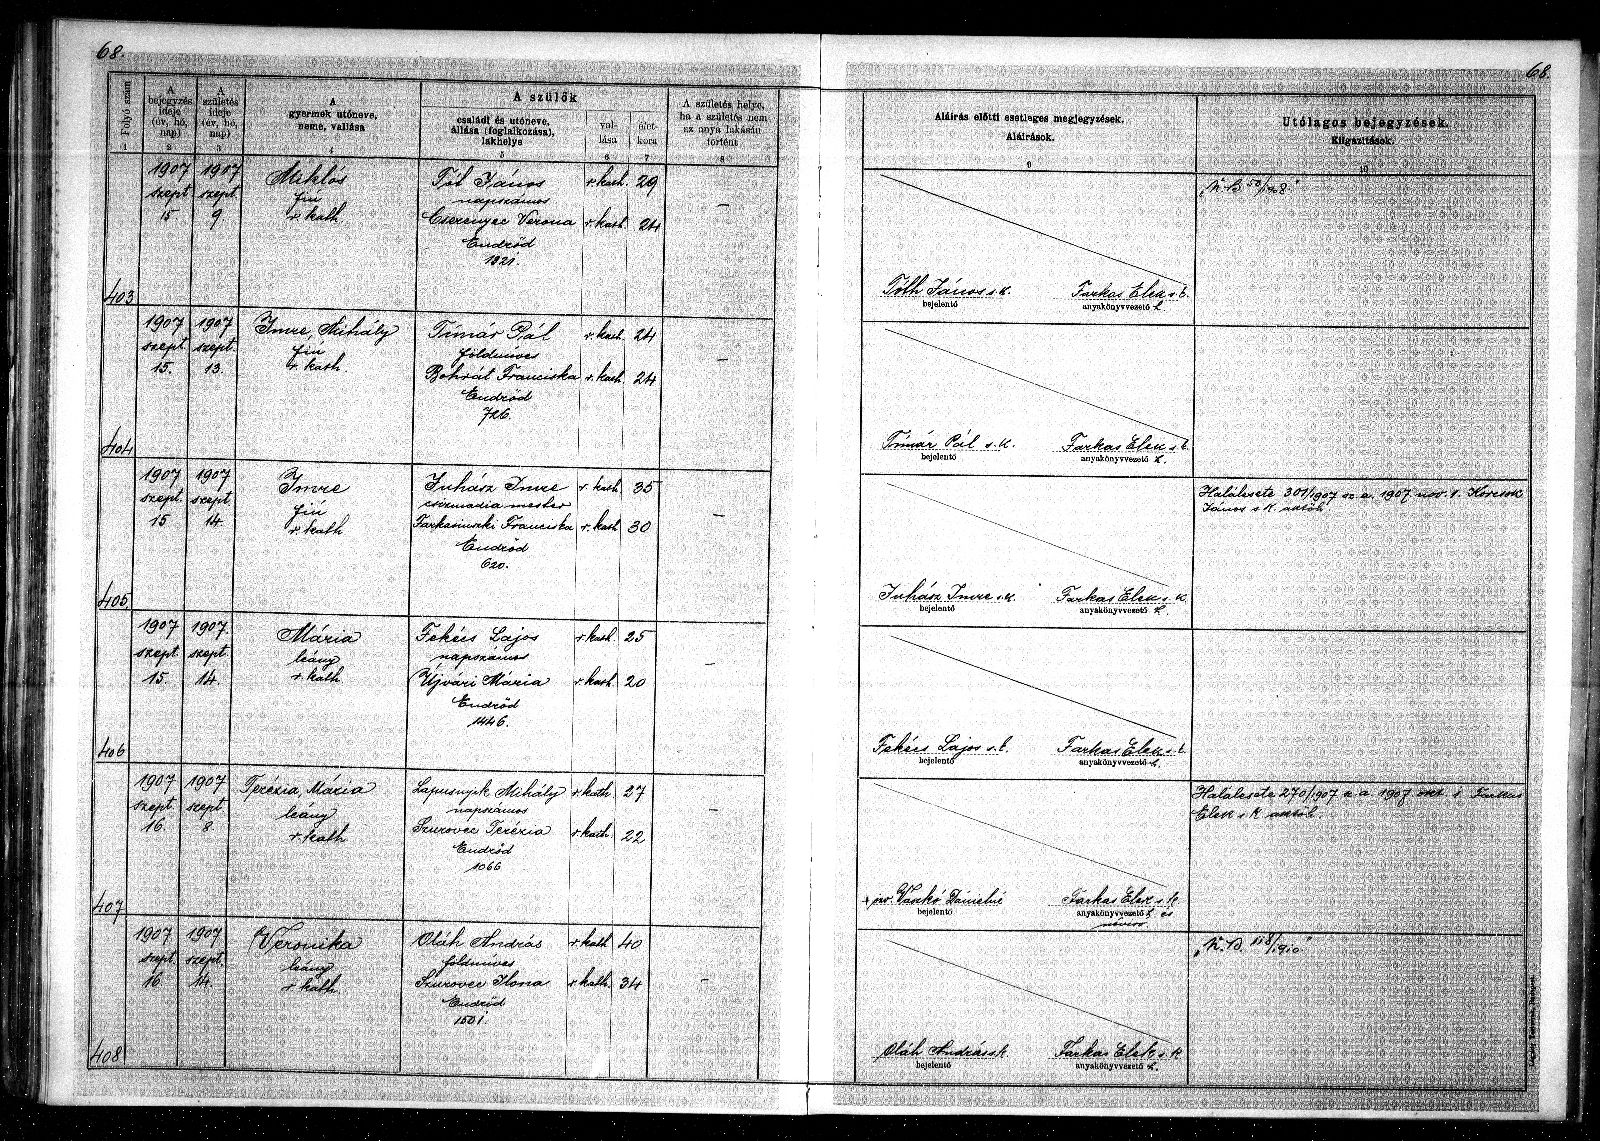 68.
68.
Folyó szám
A bejegyzés ideje (év, hó, nap)
A születés ideje (év, hó, nap)
A gyermek utóneve, neme, vallása
A szülők
családi és utóneve, állása (foglalkozása), lakhelye
vallása
életkora
A születés helye, ha a születés nem az anya lakásán történt
Aláírás előtti esetleges megjegyzések. Aláírások.
Utólagos bejegyzések. Kiigazítások.
1 2 3 4 5 6 7 8 9 10
403
1907 szept 15
1907 szept. 9
Miklós
fiú
r. kath
Tót János r. kath. 29
napszámos
Cserenyec Verona r. kath. 24
Endrőd
1321.
—
Tóth János s. k.
bejelentő
Farkas Elek s. k.
anyakönyvvezető h.
„N. B 50/1908"
404
1907 szept. 15.
1907 szept. 13.
Imre, Mihály
fiú
r. kath
Tímár Pál r. kath 24
földmíves
Bohrát Franciska r. kath. 24
Endrőd
726.
—
Tímár Pál s. k.
bejelentő
Farkas Elek s. k.
anyakönyvvezető h.
405
1907 szept. 15
1907 szept. 14.
Imre
fiú
r. kath
Juhász Imre r. kath 35
csizmadia mester
Farkasinszki Franciska r. kath 30
Endrőd
620.
—
Juhász Imre s. k.
bejelentő
Farkas Elek s. k.
anyakönyvvezető h.
Halálesete 301/1907 sz. a. 1907 nov. 1.
János s. k. aktób
406
1907 szept. 15.
1907. szept. 14.
Mária
leány
r. kath
Fekécs Lajos r. kath 25
napszámos
Újvári Mária r. kath 20
Endrőd
1446.
—
Fekécs Lajos s. k.
bejelentő
Farkas Elek s. k.
anyakönyvvezető h.
407
1907 szept. 16.
1907 szept. 8
Terézia, Mária
leány
r. kath
Lapusnyik Mihály r. kath 27
napszámos
Szurovec Terézia r. kath 22
Endrőd
1066
—
Vaskó Dánielné
bejelentő
Farkas Elek s. k.
anyakönyvvezető h. és
névíró
Halálesete 270/1907 sz. a. 1907 okt 1 Farkas
Elek s. k. aktób.
408
1907 szept. 16
1907 szept. 14.
Veronika
leány
r. kath.
Oláh András r. kath 40
földmíves
Szurovec Ilona r. kath. 34
Endrőd
1501.
—
Oláh András s. k.
bejelentő
Farkas Elek s. k.
anyakönyvvezető h.
„N. B. 118/1910"